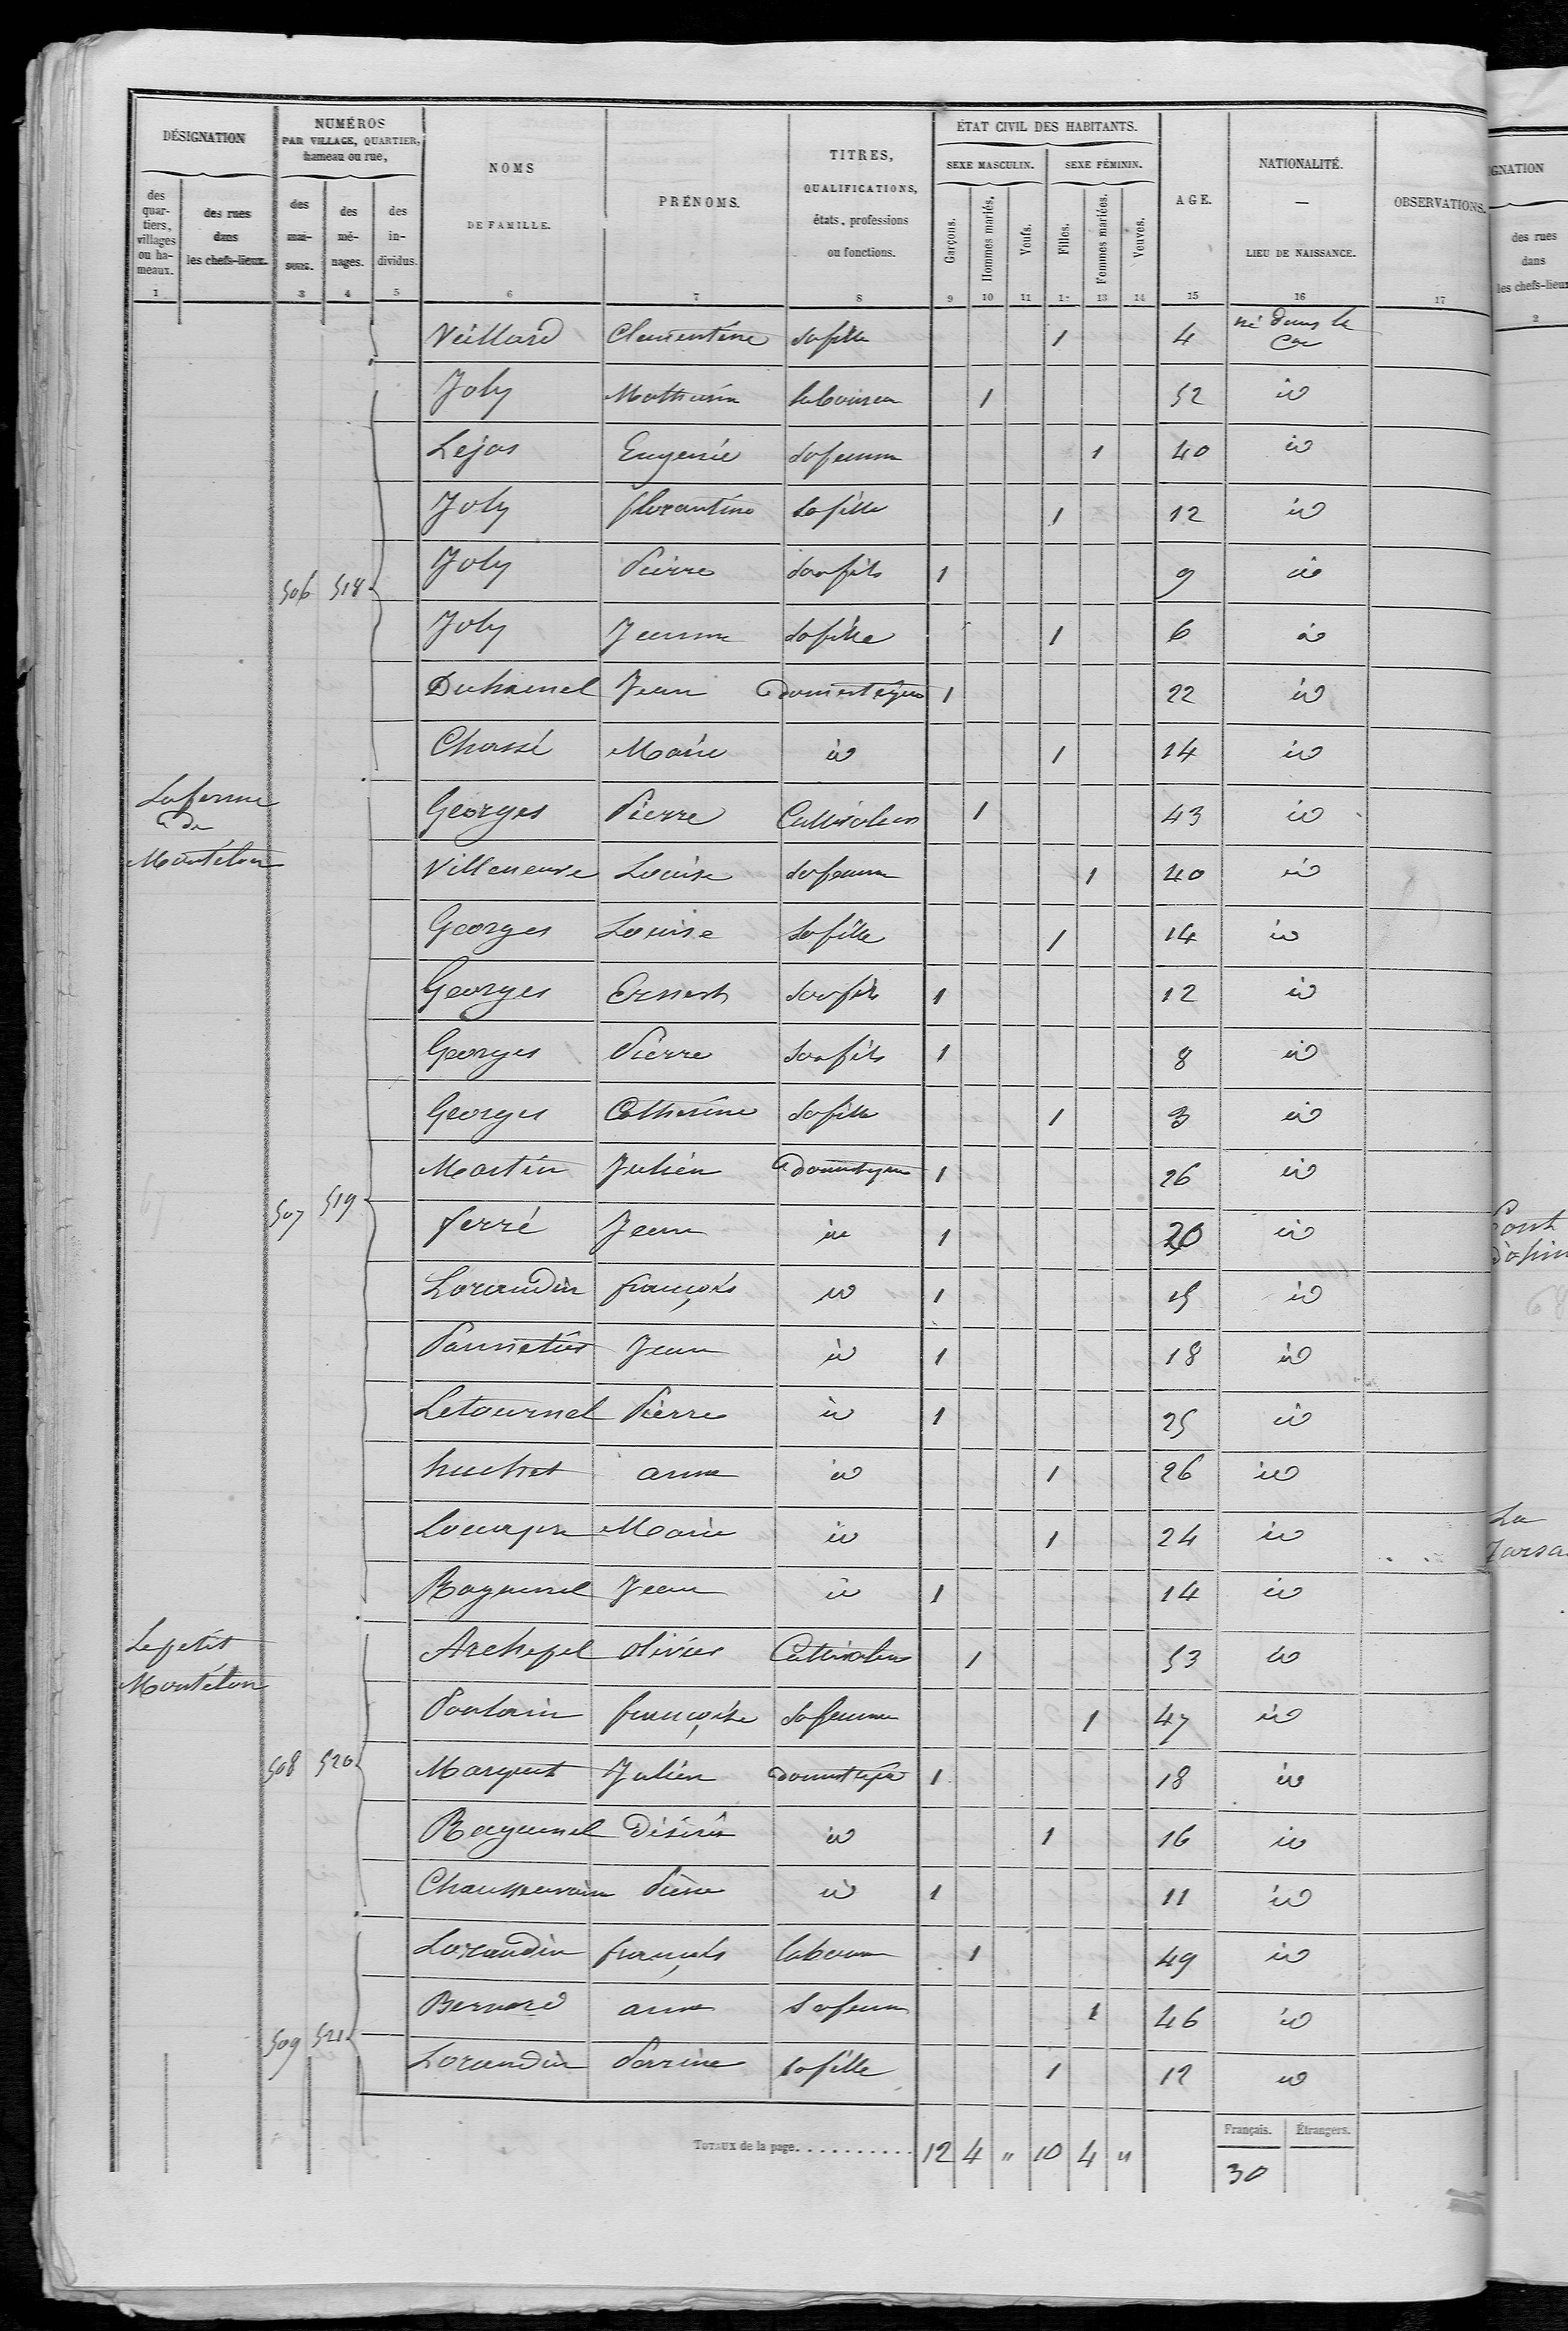 DÉSIGNATION
NUMÉROS
PAR VILLAGE, QUARTIER,
hameau ou rue,
NOMS
DE FAMILLE.
PRÉNOMS.
TITRES,
QUALIFICATIONS,
états, professions
ou fonctions.
ÉTAT CIVIL DES HABITANTS.
SEXE MASCULIN. SEXE FÉMININ.
AGE.
NATIONALITÉ.
—
LIEU DE NAISSANCE.
OBSERVATIONS.
des quar-tiers, villages ou ha-meaux.
des rues dans les chefs-lieux.
des mai-sons.
des mé-nages.
des in-dividus.
Garçons. Hommes mariés. Veufs. Filles. Femmes mariées. Veuves.
1 3 4 5 6 7 8 9 10 11 12 13 14 15 16 17
Veillard Clementine sa fille 1 4 né dans la Cne
Joly Mathurin laboureur 1 52 id
Lejas Eugenie sa femme 1 40 id
Joly florantine sa fille 1 12 id
506 518 Joly Pierre son fils 1 9 id
Joly Jeanne sa fille 1 6 id
Duhamel Jean domestique 1 22 id
Chassé Marie id 1 14 id
La ferme de Montélon
Georges Pierre Cultivateur 1 43 id
Villeneuve Louise sa femme 1 40 id
Georges Louise sa fille 1 14 id
Georges Ernest son fils 1 12 id
Georges Pierre son fils 1 8 id
Georges Catherine sa fille 1 3 id
Martin Julien domestique 1 26 id
507 519 ferré Jean id 1 20 id
Lorandin françois id 1 15 id
Pannetier Jean id 1 18 id
Letournel Pierre id 1 25 id
huchet anne id 1 26 id
Marie id 1 24 id
Raguenel Jean id 1 14 id
Le petit Montélon
Archepel olivier Cultivateur 1 53 id
Poulain françoise sa femme 1 47 id
508 520 Marquet Julien domestique 1 18 id
Raguenel désirée id 1 16 id
Pierre id 1 11 id
Lorandin françois laboureur 1 49 id
Bernard anne sa femme 1 46 id
509 521 Lorandin Perrine sa fille 1 12 id
TOTAUX de la page........... 12 4 " 10 4 "
Français. Étrangers.
30
GNATION
des rues
dans
les chefs-lieux
2
Pont
La